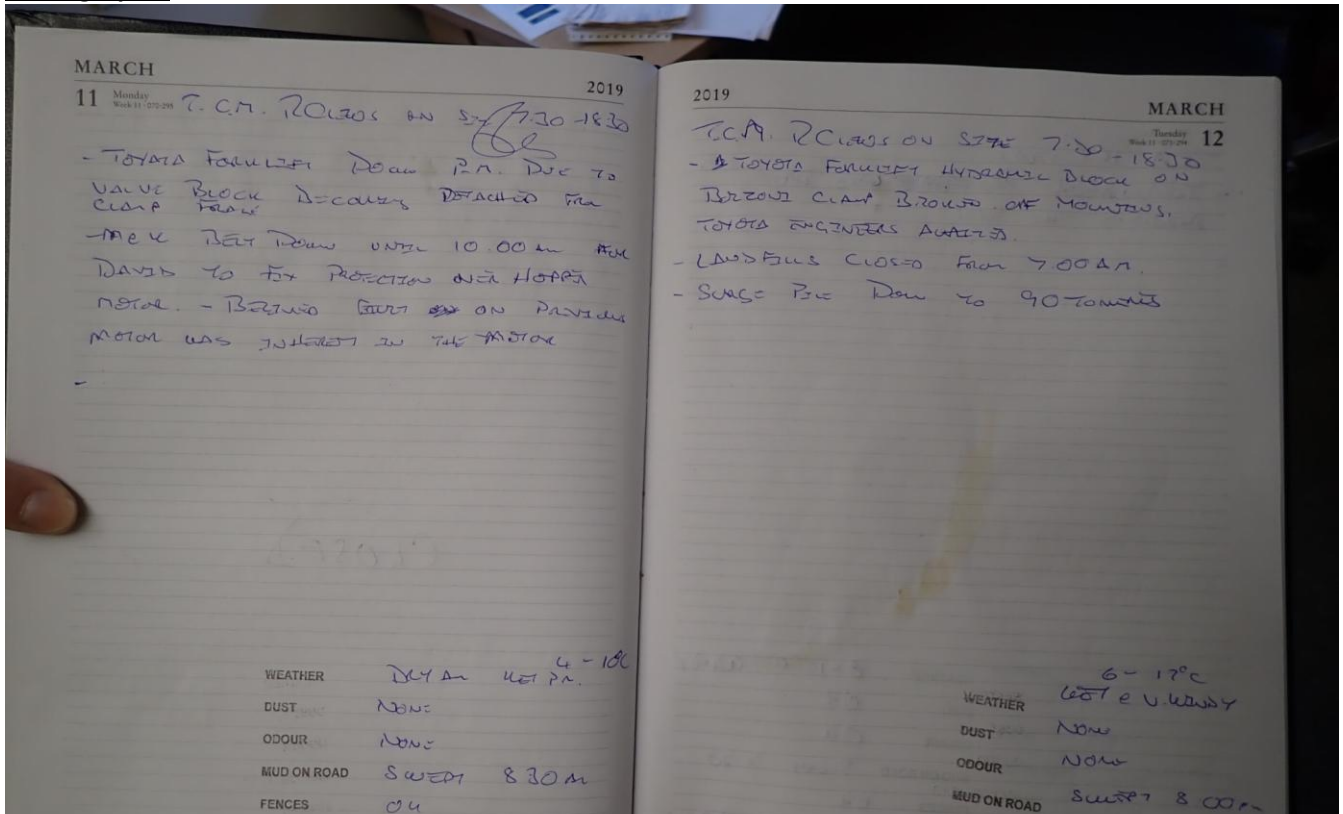 MARCH
2019
11 Monday
Week 11 · 070-295
T.C.M. ON 7.30 - 18.30
- TOYOTA FORKLIFT DOWN P.M. DUE TO
VALVE BLOCK DETACHED
CLAMP
BELT DOWN UNTIL 10.00 AM
DAVID TO FIX PROTECTION OVER HOPPER
MOTOR. - FAULT ON PREVIOUS
MOTOR WAS INHERENT IN THE MOTOR
-
4 - 10°C
WEATHER DRY AM WET PM.
DUST NONE
ODOUR NONE
MUD ON ROAD SWEPT 8 30 AM
FENCES OK
2019
MARCH
Tuesday 12
Week 11 · 071-294
T.C.M. ON SITE 7.30 - 18.30
- TOYOTA FORKLIFT HYDRAULIC BLOCK ON
BOLZONI CLAMP BROKEN OFF MOUNTINGS.
TOYOTA ENGINEERS AWAITED.
- LANDFILLS CLOSED FROM 7.00 AM.
- SURGE PILE DOWN TO 90 TONNES
6 - 17°C
WEATHER WET & V. WINDY
DUST NONE
ODOUR NONE
MUD ON ROAD SWEPT 8 00